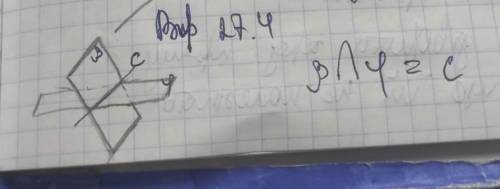 Впр 27.4
β
C
φ
β ∩ φ = C